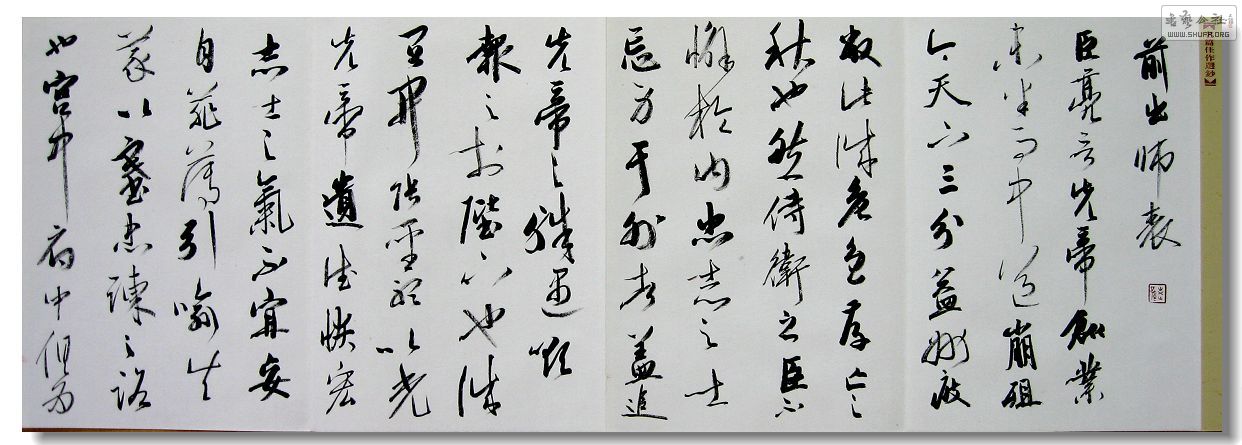 書藝公社
WWW.SHUFA.ORG
前出師表
臣亮言先帝創業
未半而中道崩殂
今天下三分益州疲
敝此誠危急存亡之
秋也然侍衛之臣不
懈於内忠志之士
忘身于外者蓋追
先帝之殊遇欲
報之於陛下也誠
宜開張聖聽以光
先帝遺德恢宏
志士之氣不宜妄
自菲薄引喻失
義以塞忠諫之路
也宮中府中俱為